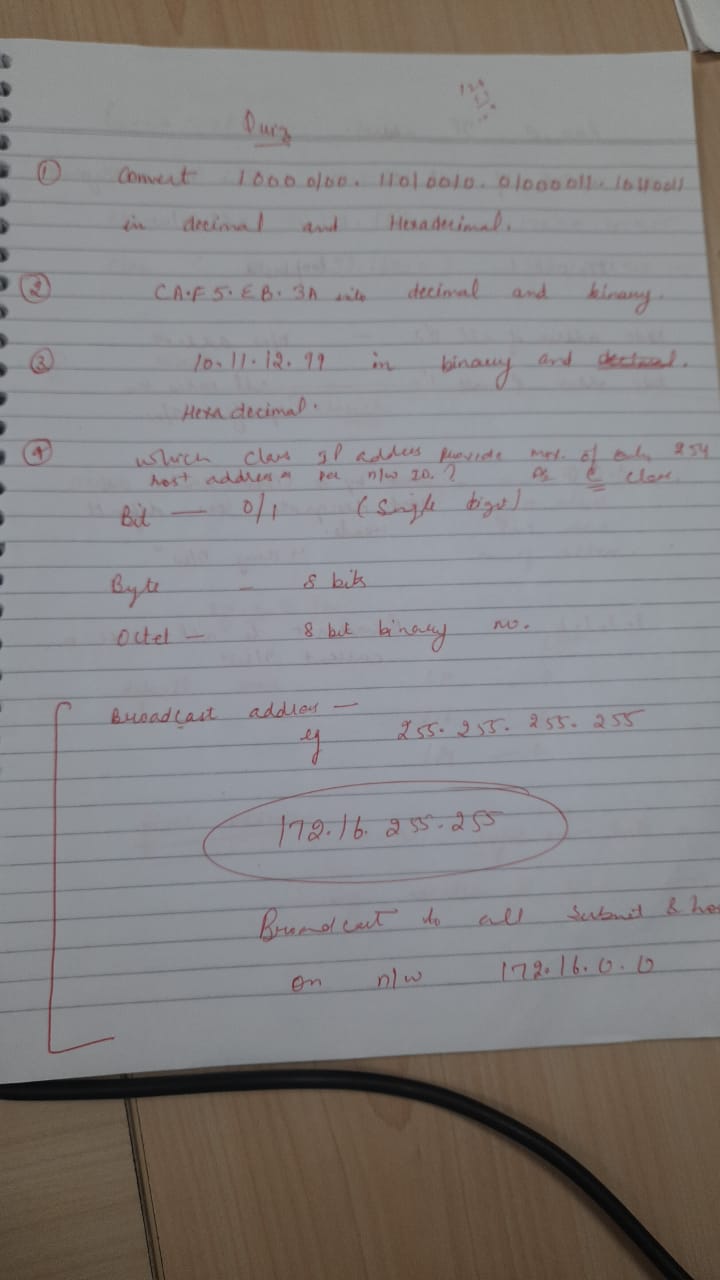 Quiz
① Convert 10000100. 11010010. 01000011. 10110011
in decimal and Hexadecimal.
② CA.F5.EB.3A into decimal and binary.
③ 10.11.12.99 in binary and decimal.
Hexa decimal.
④ which class IP address provide max. of only 254
host address per n/w ID.? C class
Bit — 0/1 (Single digit)
Byte - 8 bits
Octet — 8 bit binary no.
Broadcast address —
eg 255. 255. 255. 255
172.16. 255.255
Broadcast to all Subnet &
on n/w 172.16.0.0